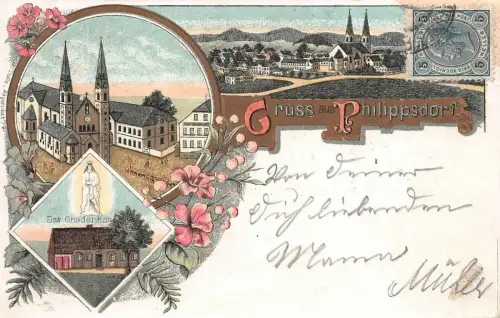 Gruss aus Philippsdorf
5 5
Das Gnadenhaus
Von Deiner
Dich liebenden
Mama